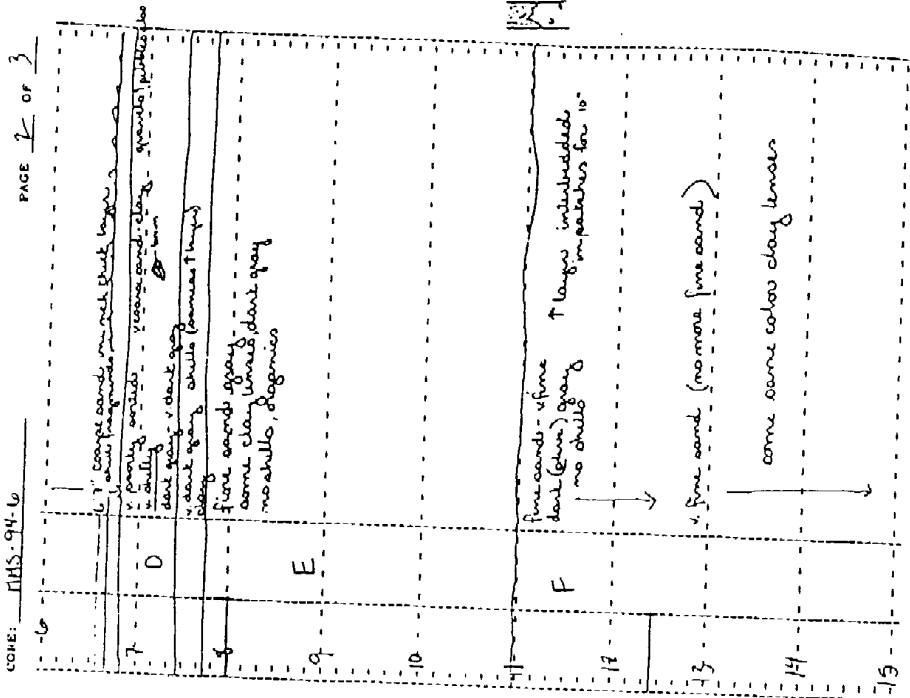 CORE: MMS-94-6
PAGE 2 OF 3
-6
coarse sand in inch thick layer
shell fragments
v. poorly sorted v coarse sand - clay - gravels/pebbles also
v. shelly
7
D
dark gray - v dark gray
v. dark gray shells (same as ↑ layer)
clay
8
fine sand gray
some clay lenses, dark gray
no shells, organics
E
-9
-10
-11
fine sand - v. fine
dark (olive) gray
no shells
↑ layer interbedded
in patches for 10"
F
-12
v. fine sand (no more fine sand)
-13
some same color clay lenses
-14
-15